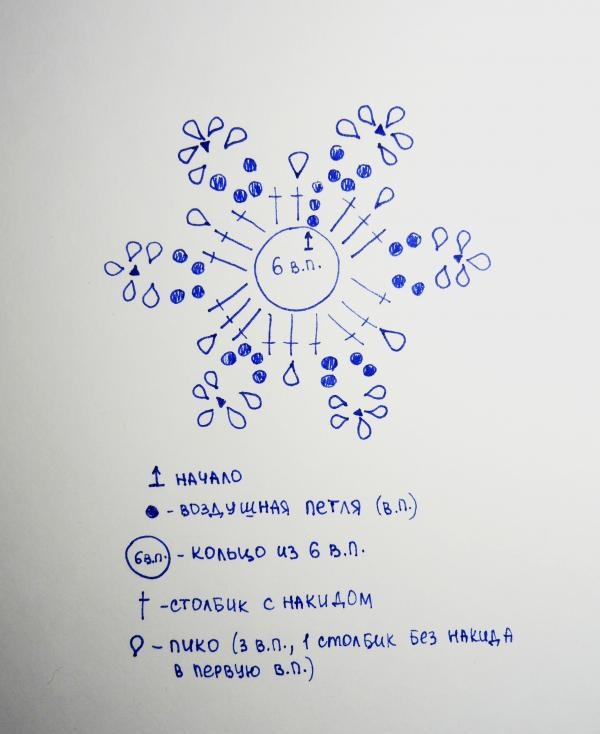 6 в.п.
НАЧАЛО
- ВОЗДУШНАЯ ПЕТЛЯ (В.П.)
6 в.п. - КОЛЬЦО ИЗ 6 В.П.
- СТОЛБИК С НАКИДОМ
- ПИКО (3 В.П., 1 СТОЛБИК БЕЗ НАКИДА
В ПЕРВУЮ В.П.)